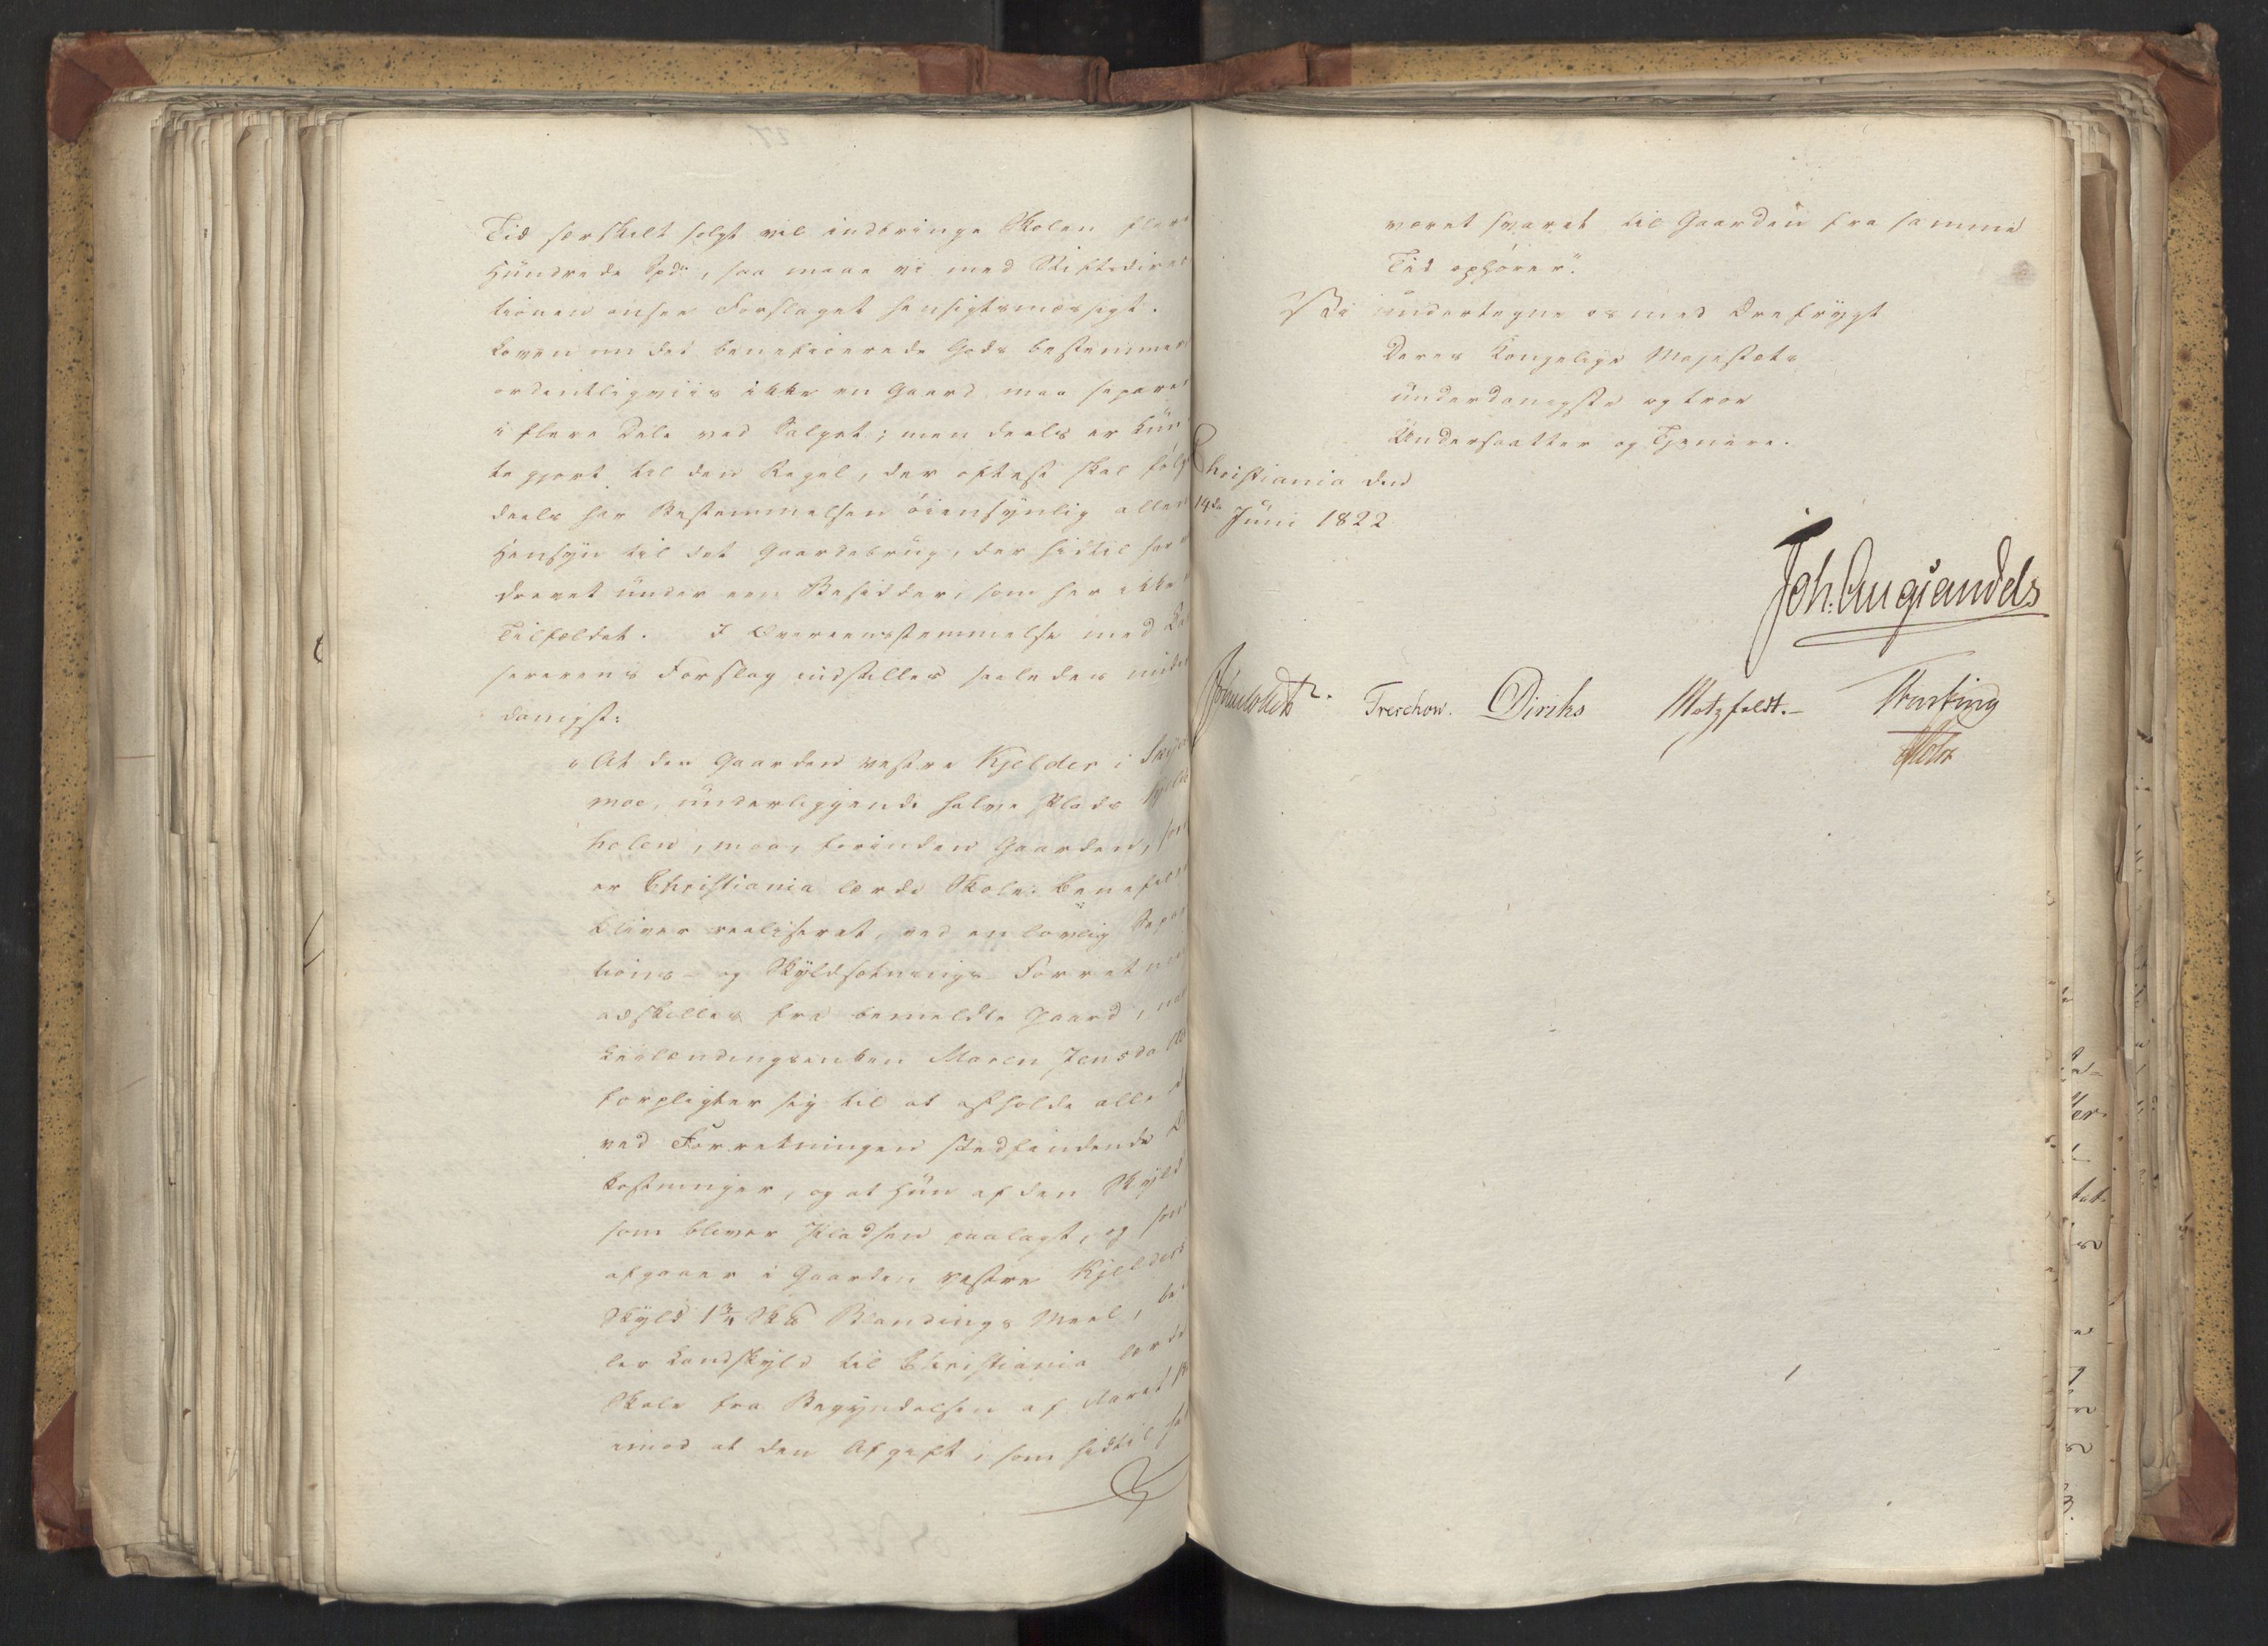 Tid særskilt solgt vil indbringe Skolen flere
Hundrede Spd, saa maae vi med Stiftsdirec
tionen ansee Forslaget hensigtsmæssigt.
Loven om det beneficerede Gods bestemmer
ordentligviis ikke en Gaard maa separe
i flere Dele ved Salget; men deels er
te gjort til den Regel, der oftest skal følg
deels har Bestemmelsen öiensynlig allen
Hensyn til det Gaardebrug, der hidtil har
drevet under een Besidder, som her ikke
Tilfældet. I Overeensstemmelse med
sererens Forslag indstilles saaledes
danigst:
"At den Gaarden vestre Kjelder i
moe, underliggende halve Plads
holen, maae, forinden Gaarden, som
er Christiania lærde Skole benefic
bliver realiseret, ved en lovlig Sepa
tions- og Skyldsætnings-Forretn
adskilles fra bemeldte Gaard,
Leilændingsenken Maren Jensda
forpligter sig til at afholde alle
ved Forretningen stedfindende
kostninger, og at hun af den Skyld
som bliver Pladsen paalagt, og som
afgaaer i Gaarden vestre Kjelders
Skyld 1 3/4 Sk℔ Blandings Meel, be
ler Landskyld til Christiania lærde
Skole fra Begyndelsen af Aaret
imod at den Afgift, som hidtil ha
været svaret til Gaarden fra samme
Tid ophører".
Vi undertegne os med Ærefrygt
Deres Kongelige Majestæts
underdanigste og troe
Undersaatter og Tjenere.
Christiania den
14de Juni 1822
Joh. Aug. Sandels
Treschow. Diriks Motzfeldt.-
Holst